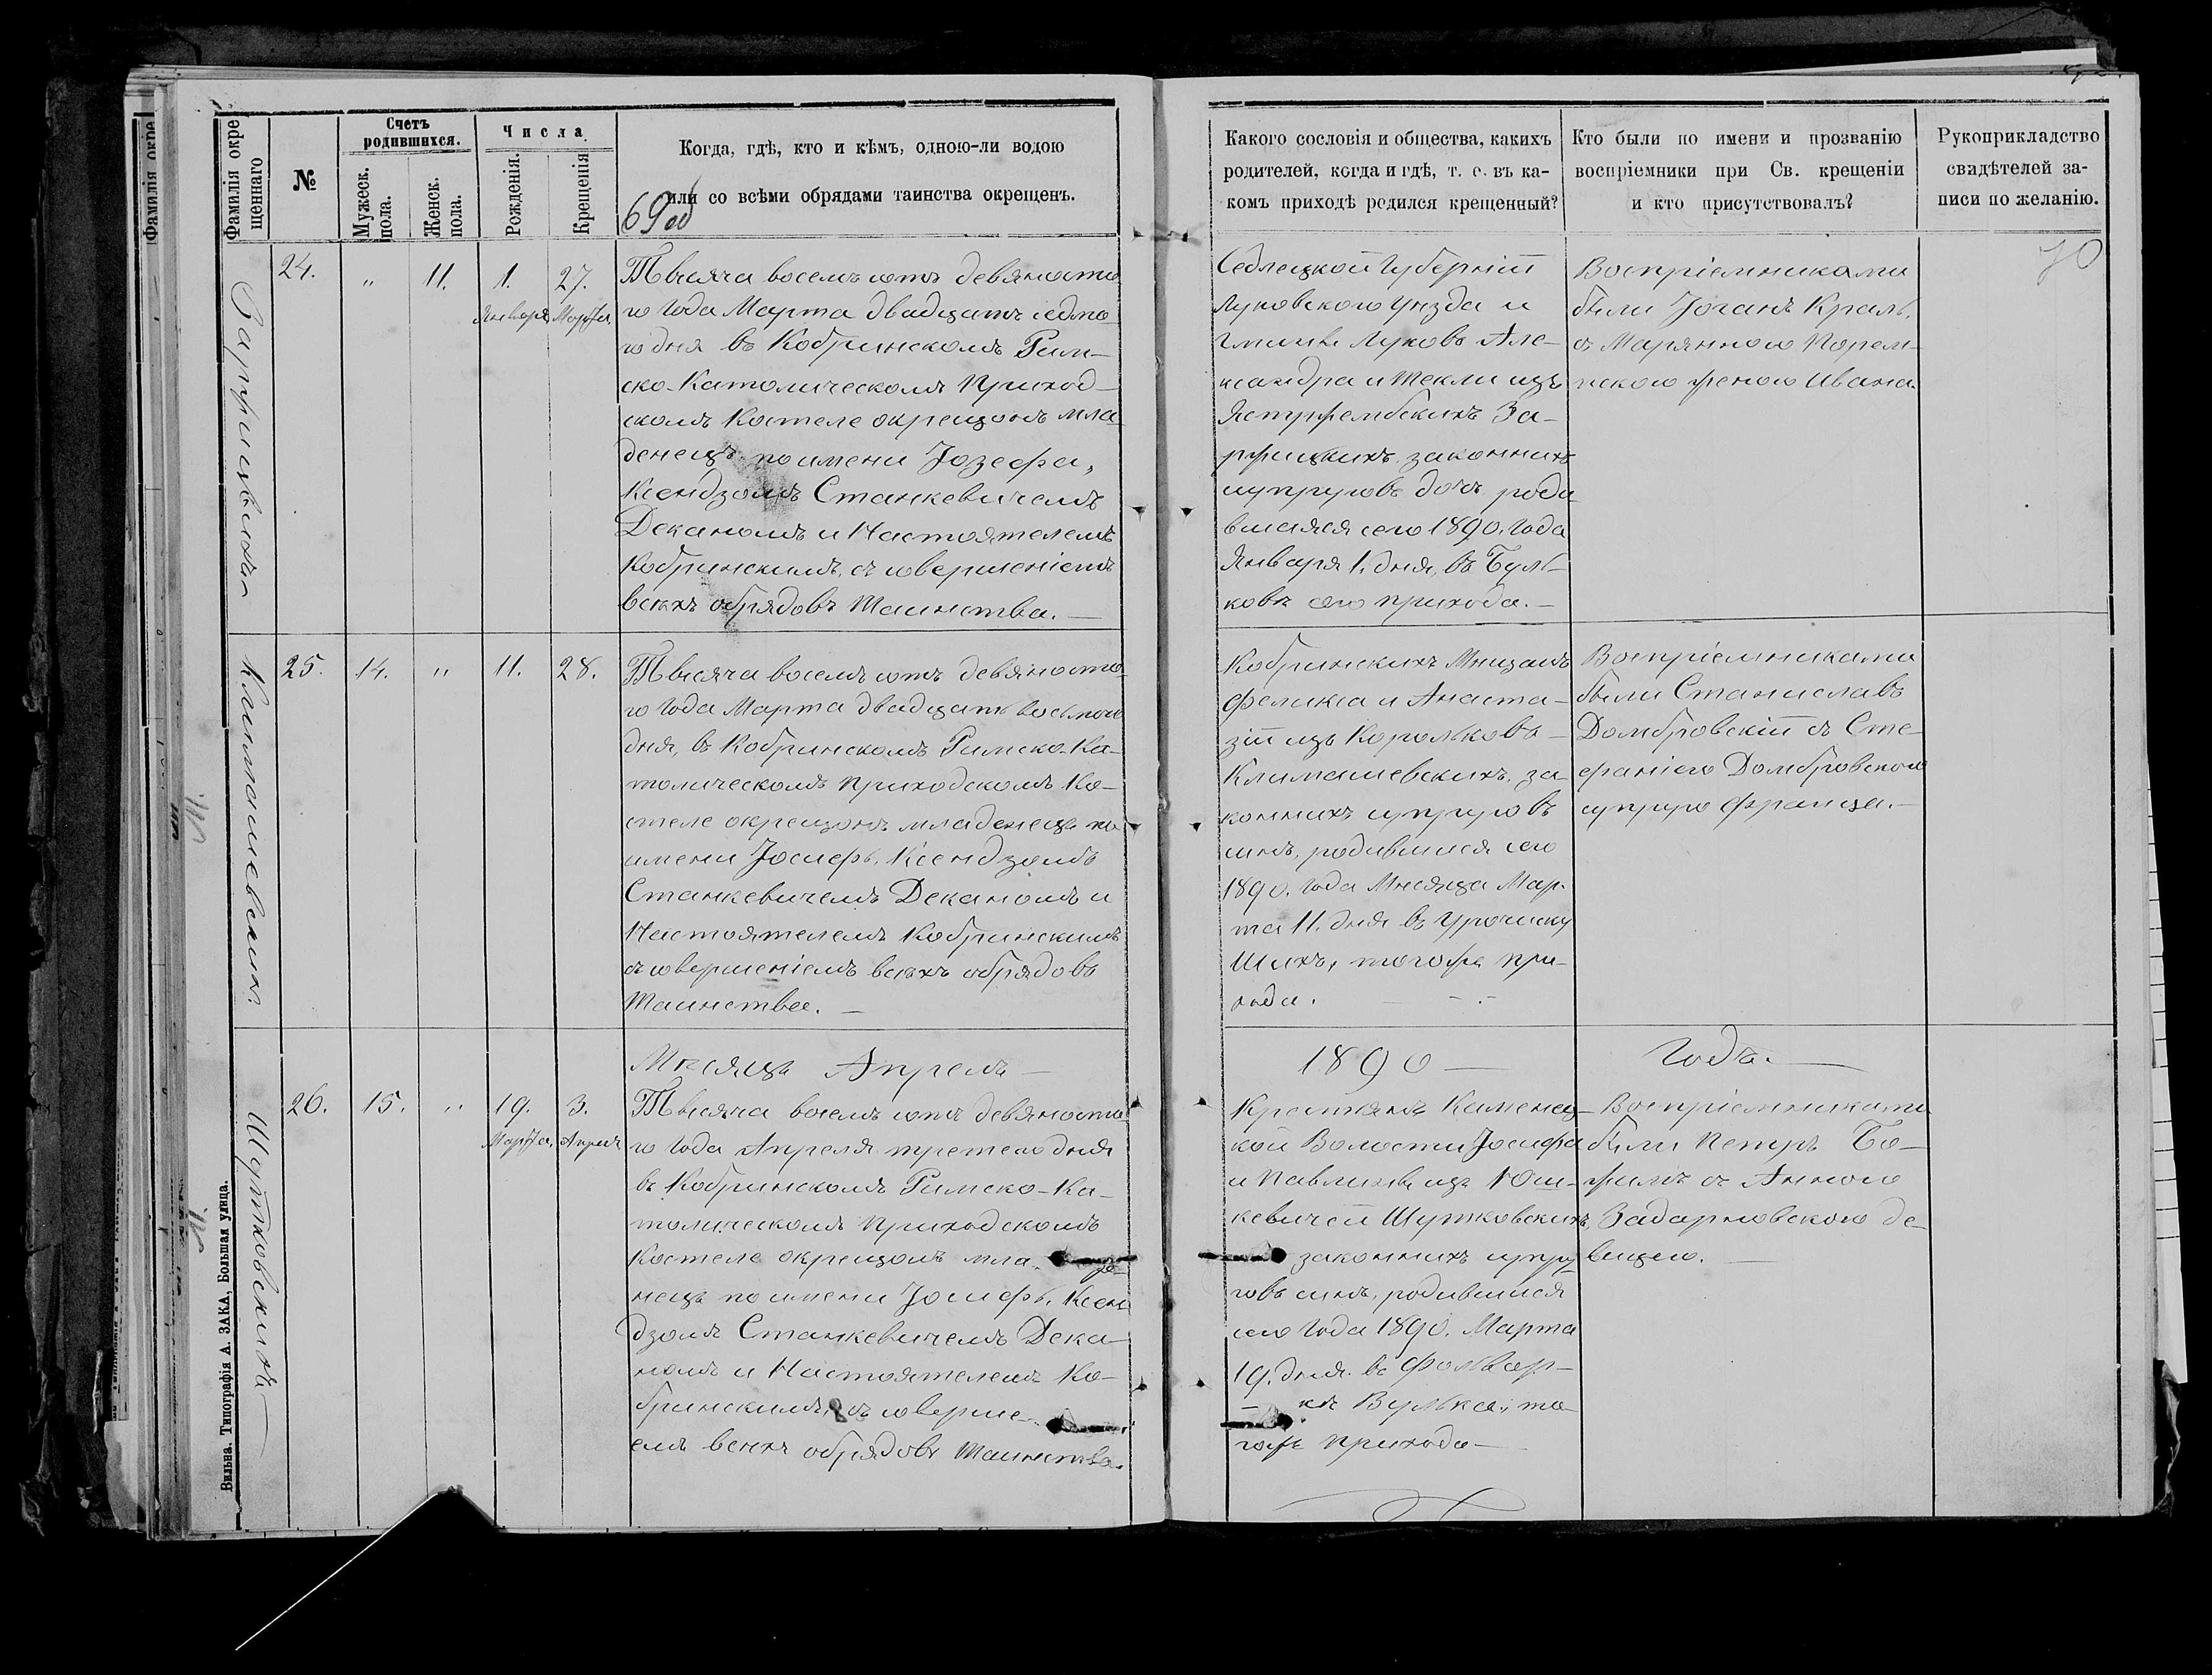 Фамилія окре
Фамилія окре
щеннаго
№
Счетъ
родившихся.
Мужеск.
пола.
Женск.
пола.
Числа
Рожденія.
Крещенія
Когда, гдѣ, кто и кѣмъ, одною-ли водою
или со всѣми обрядами таинства окрещенъ.
69об
Какого сословія и общества, какихъ
родителей, когда и гдѣ, т. е. въ ка-
комъ приходѣ родился крещенный?
Кто были по имени и прозванію
воспріемники при Св. крещеніи
и кто присутствовалъ?
Рукоприкладство
свидѣтелей за-
писи по желанію.
70
24.
"
11.
1.
Января
27.
Марта
Тысяча восемъ сотъ девяносто
го Года Марта двадцать седмо
го дня въ Кобринскомъ Рим-
ско-Католическомъ Приход-
скомъ Костеле окрещонъ мла
денецъ по имени Іозефа,
Ксендзомъ Станкевичемъ
Деканомъ и Настоятелемъ
Кобринскимъ, съ совершеніемъ
всѣхъ обрядовъ Таинства.—
Седлецкой Губерніи
Луковского Уезда и
Гмины Луковъ Але-
ксандра и Текли изъ
Ястржембскихъ За-
законныхъ
супруговъ дочь роди
вшаяся сего 1890. Года
Января 1. дня, въ Буль-
ковъ сего прихода.—
Воспріемниками
были Іоганъ Краль,
съ Марянною
женою Ивана.
Климашевскій.
25.
14.
"
11.
28.
Тысяча восемъ сотъ девяносто-
го Года Марта двадцать восьмого
дня, въ Кобринскомъ Римско-Ка-
толическомъ Приходскомъ Ко-
стеле окрещонъ младенецъ по
имени Іосифъ, Ксендзомъ
Станкевичемъ Деканомъ и
Настоятелемъ Кобринскимъ
съ совершеніемъ всѣхъ обрядовъ
Таинства.—
Кобринскихъ Мищанъ
Феликса и Анаста-
зіи изъ Корольковъ-
Климашевскихъ, за-
конныхъ супруговъ
сынъ, родившися сего
1890. Года Мѣсяца Мар-
та 11. дня въ Урочиску
тогоже при-
хода.
Воспріемниками
были Станиславъ
Домбровскій съ Сте-
фаніею Домбровскою
супругою Франца.—
Мѣсяцъ Апрель —
1890 —
Годъ.—
Шутковскій—
26.
15.
"
19.
Марта
3.
Апреля
Тысяча восемъ сотъ девяносто
го Года Апреля третего дня
въ Кобринскомъ Римско-Ка-
толическомъ Приходскомъ
Костеле окрещонъ мла- де-
нецъ по имени Іосифъ, Ксен
дзомъ Станкевичемъ Дека-
номъ и Настоятелемъ Ко-
бринскимъ, съ соверше-
емъ всѣхъ обрядовъ Таинства.
Крестянъ Каменец-
кой Волости Іосифа
и Павлины изъ Юш-
кевичей Шутковскихъ,
законныхъ супру
говъ сынъ, родившися
сего Года 1890. Марта
19. дня въ Фольвар-
кѣ Вулька, то
гоже прихода—
Воспріемниками
были Петръ Бо-
жимъ съ Анною
Задарновскою де-
вицею.—
Вильна. Типографія А. ЗАКА, Большая улица.